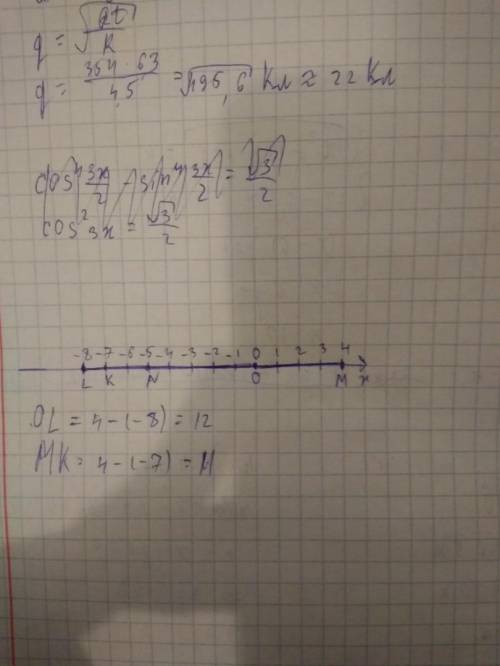 q = √(Qt/R)
q = 354 · 63 / 4,5 = √495,6 Кл ≈ 22 Кл
cos⁴ 3x/2 - sin⁴ 3x/2 = √3/2
cos² 3x = √3/2
-8 -7 -6 -5 -4 -3 -2 -1 0 1 2 3 4
L K N O M x
OL = 4 - (-8) = 12
MK = 4 - (-7) = 11